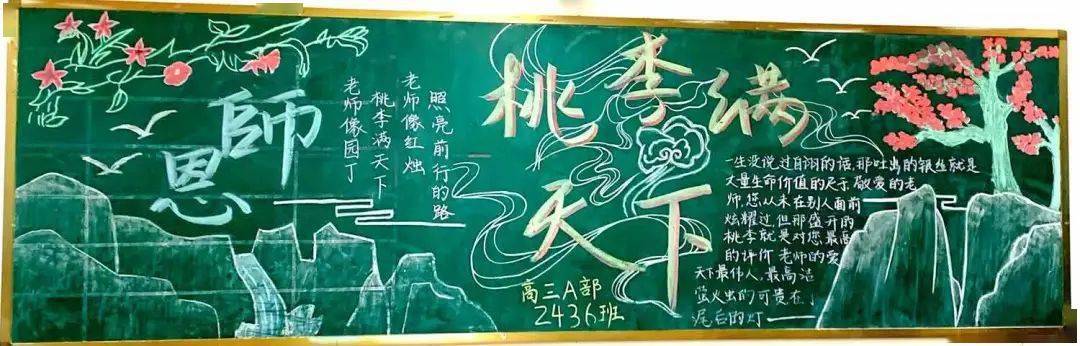 師恩
老师像园丁
桃李满天下
老师像红烛
照亮前行的路
桃李满
天下
高三A部
2436班
一生没说过自诩的话,那吐出的银丝就是
丈量生命价值的尺子.敬爱的老
师,您从未在别人面前
炫耀过,但那盛开的
桃李就是对您最高
的评价 老师的爱
天下最伟人,最高洁
萤火虫的可贵在于
尾后的灯